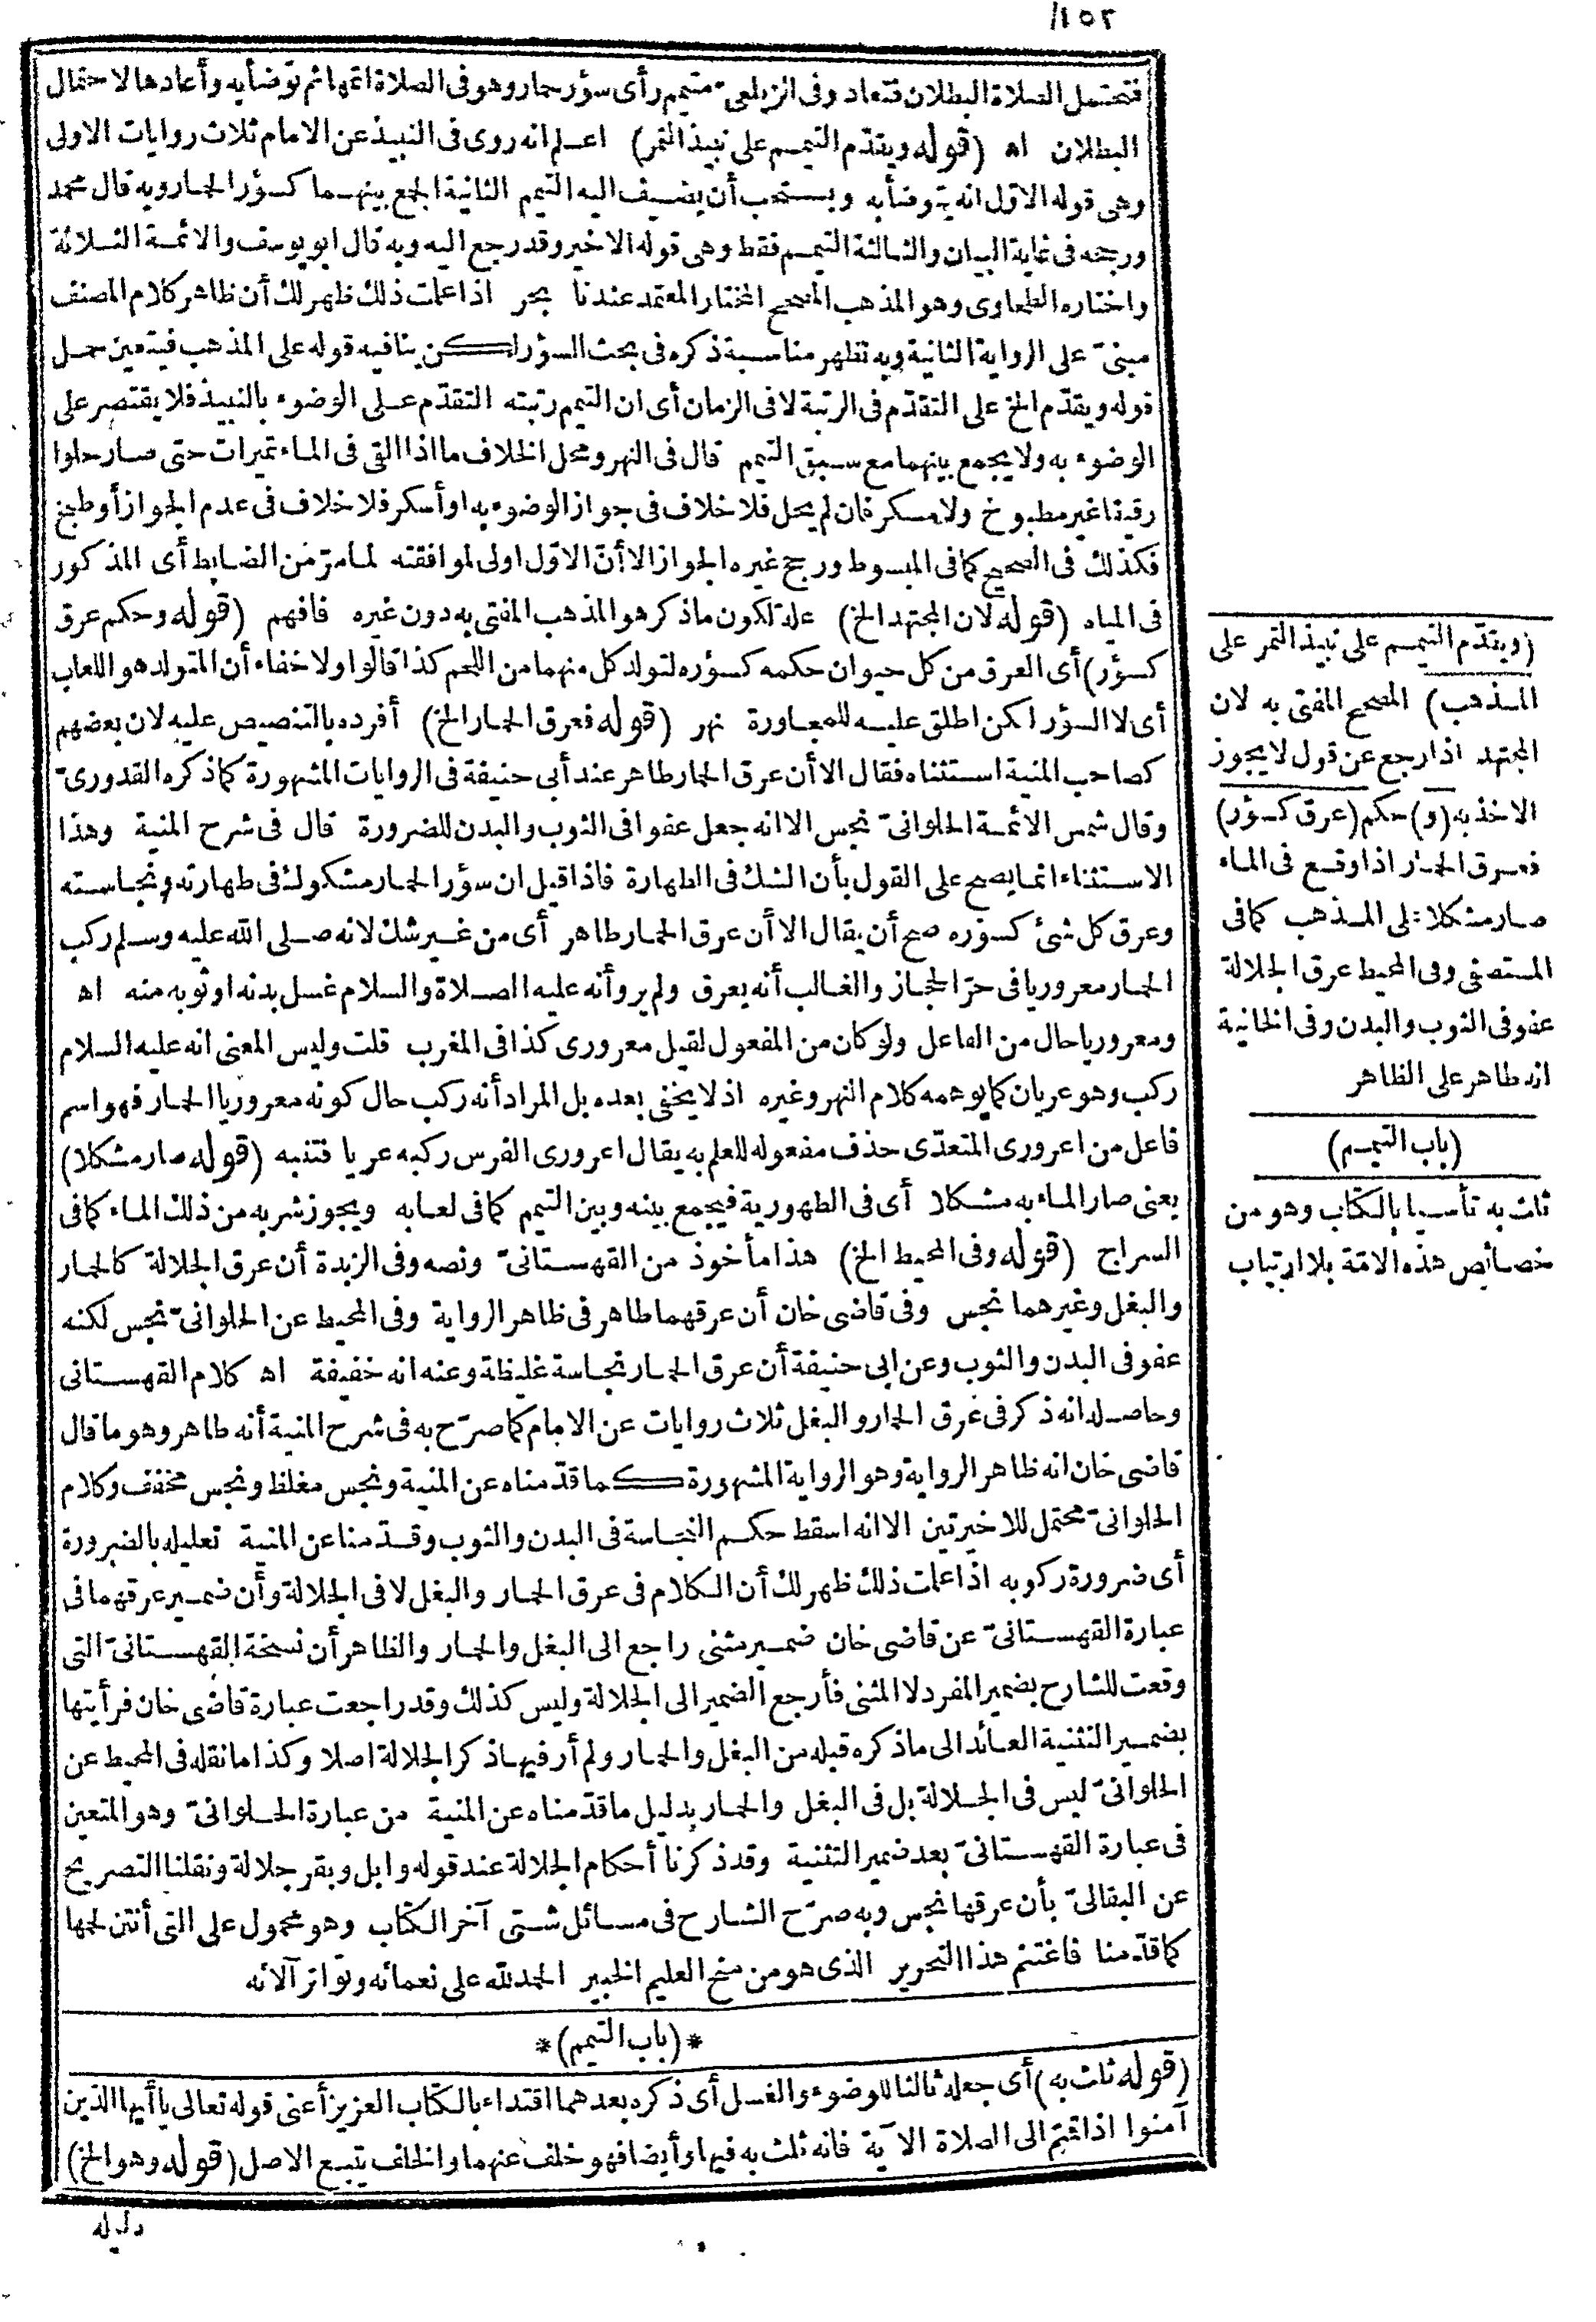 ١٥٢
فتحتمل الصلاة البطلان فتعاد وفى الزيلعىّ متيمم رأى سؤر حمار وهو فى الصلاة اتمها ثم توضأ به وأعادها لاحتمال
البطلان اه (قوله ويقدّم التيمم على نبيذ التمر) اعلم انه روى فى النبيذ عن الامام ثلاث روايات الاولى
وهى قوله الاوّل انه يتوضأ به ويستحب أن يضيف اليه التيمم الثانية الجمع بينهما كسؤر الحمار وبه قال محمد
ورجحه فى غاية البيان والثالثة التيمم فقط وهى قوله الاخير وقد رجع اليه وبه قال ابو يوسف والائمة الثلاثة
واختاره الطحاوى وهو المذهب الصحيح المختار المعتمد عندنا بحر اذا علمت ذلك ظهر لك أن ظاهر كلام المصنف
مبنىّ على الرواية الثانية وبه تظهر مناسبة ذكره فى بحث السؤر لكن ينافيه قوله على المذهب فيتعين حمل
قوله ويقدّم الخ على التقدّم فى الرتبة لا فى الزمان أى ان التيمم رتبته التقدّم على الوضوء بالنبيذ فلا يقتصر على
الوضوء به ولا يجمع بينهما مع سبق التيمم قال فى النهر ومحل الخلاف ما اذا القى فى الماء تميرات حتى صار حلوا
رقيقا غير مطبوخ ولا مسكر فان لم يحل فلا خلاف فى جواز الوضوء به او أسكر فلا خلاف فى عدم الجواز أو طبخ
فكذلك فى الصحيح كما فى المبسوط ورجح غيره الجواز الا أنّ الاوّل اولى لموافقته لما مرّ من الضابط أى المذكور
فى المياه (قوله لان المجتهد الخ) علة لكون ما ذكر هو المذهب المفتى به دون غيره فافهم (قوله وحكم عرق
كسؤر) أى العرق من كل حيوان حكمه كسؤره لتولد كل منهما من اللحم كذا قالوا ولا خفاء أن المتولد هو اللعاب
أى لا السؤر لكن اطلق عليه للمجاورة نهر (قوله فعرق الحمار الخ) أفرده بالتنصيص عليه لان بعضهم
كصاحب المنية استثناه فقال الا أن عرق الحمار طاهر عند أبى حنيفة فى الروايات المشهورة كما ذكره القدورىّ
وقال شمس الائمة الحلوانىّ نجس الا انه جعل عفوا فى الثوب والبدن للضرورة قال فى شرح المنية وهذا
الاستثناء انما يصح على القول بأن الشك فى الطهارة فاذا قيل ان سؤر الحمار مشكوك فى طهارته ونجاسته
وعرق كل شئ كسؤره صح أن يقال الا أن عرق الحمار طاهر أى من غير شك لانه صلى الله عليه وسلم ركب
الحمار معروريا فى حرّ الحجاز والغالب أنه يعرق ولم يرو أنه عليه الصلاة والسلام غسل بدنه او ثوبه منه اه
ومعروريا حال من الفاعل ولو كان من المفعول لقيل معرورى كذا فى المغرب قلت وليس المعنى انه عليه السلام
ركب وهو عريان كما يوهمه كلام النهر وغيره اذ لا يخفى بعده بل المراد أنه ركب حال كونه معروريا الحمار فهو اسم
فاعل من اعرورى المتعدّى حذف مفعوله للعلم به يقال اعرورى الفرس ركبه عريا فتنبه (قوله صار مشكلا)
يعنى صار الماء به مشكلا أى فى الطهورية فيجمع بينه وبين التيمم كما فى لعابه ويجوز شربه من ذلك الماء كما فى
السراج (قوله وفى المحيط الخ) هذا مأخوذ من القهستانىّ ونصه وفى الزبدة أن عرق الجلالة كالحمار
والبغل وغيرهما نجس وفى قاضى خان أن عرقهما طاهر فى ظاهر الرواية وفى المحيط عن الحلوانىّ نجس لكنه
عفو فى البدن والثوب وعن ابى حنيفة أن عرق الحمار نجاسة غليظة وعنه انه خفيفة اه كلام القهستانى
وحاصله انه ذكر فى عرق الحمار والبغل ثلاث روايات عن الامام كما صرّح به فى شرح المنية أنه طاهر وهو ما قال
قاضى خان انه ظاهر الرواية وهو الرواية المشهورة كما قدّمناه عن المنية ونجس مغلظ ونجس مخفف وكلام
الحلوانىّ محتمل للاخيرتين الا انه اسقط حكم النجاسة فى البدن والثوب وقدّمنا عن المنية تعليله بالضرورة
أى ضرورة ركوبه اذا علمت ذلك ظهر لك أن الكلام فى عرق الحمار والبغل لا فى الجلالة وأن ضمير عرقهما فى
عبارة القهستانىّ عن قاضى خان ضمير مثنى راجع الى البغل والحمار والظاهر أن نسخة القهستانىّ التى
وقعت للشارح بضمير المفرد لا المثنى فأرجع الضمير الى الجلالة وليس كذلك وقد راجعت عبارة قاضى خان فرأيتها
بضمير التثنية العائد الى ما ذكره قبله من البغل والحمار ولم أر فيها ذكر الجلالة اصلا وكذا ما نقله فى المحيط عن
الحلوانىّ ليس فى الجلالة بل فى البغل والحمار بدليل ما قدّمناه عن المنية من عبارة الحلوانىّ وهو المتعين
فى عبارة القهستانىّ بعد ضمير التثنية وقد ذكرنا أحكام الجلالة عند قوله وابل وبقر جلالة ونقلنا التصريح
عن البقالىّ بأن عرقها نجس وبه صرّح الشارح فى مسائل شتى آخر الكتاب وهو محمول على التى أنتن لحمها
كما قدّمنا فاغتنم هذا التحرير الذى هو من منح العليم الخبير الحمد لله على نعمائه وتواتر آلائه
*(باب التيمم)*
(قوله ثلث به) أى جعله ثالثا للوضوء والغسل أى ذكره بعدهما اقتداء بالكتاب العزيز أعنى قوله تعالى يا أيها الذين
آمنوا اذا قمتم الى الصلاة الآية فانه ثلث به فيها وأيضا فهو خلف عنهما والخلف يتبع الاصل (قوله وهو الخ)
دليله
(ويقدّم التيمم على نبيذ التمر على
المذهب) المصحح المفتى به لان
المجتهد اذا رجع عن قول لا يجوز
الاخذ به (و) حكم (عرق كسؤر)
فعرق الحمار اذا وقع فى الماء
صار مشكلا على المذهب كما فى
المستصفى وفى المحيط عرق الجلالة
عفو فى الثوب والبدن وفى الخانية
انه طاهر على الظاهر
(باب التيمم)
ثلث به تأسيا بالكتاب وهو من
خصائص هذه الامّة بلا ارتياب